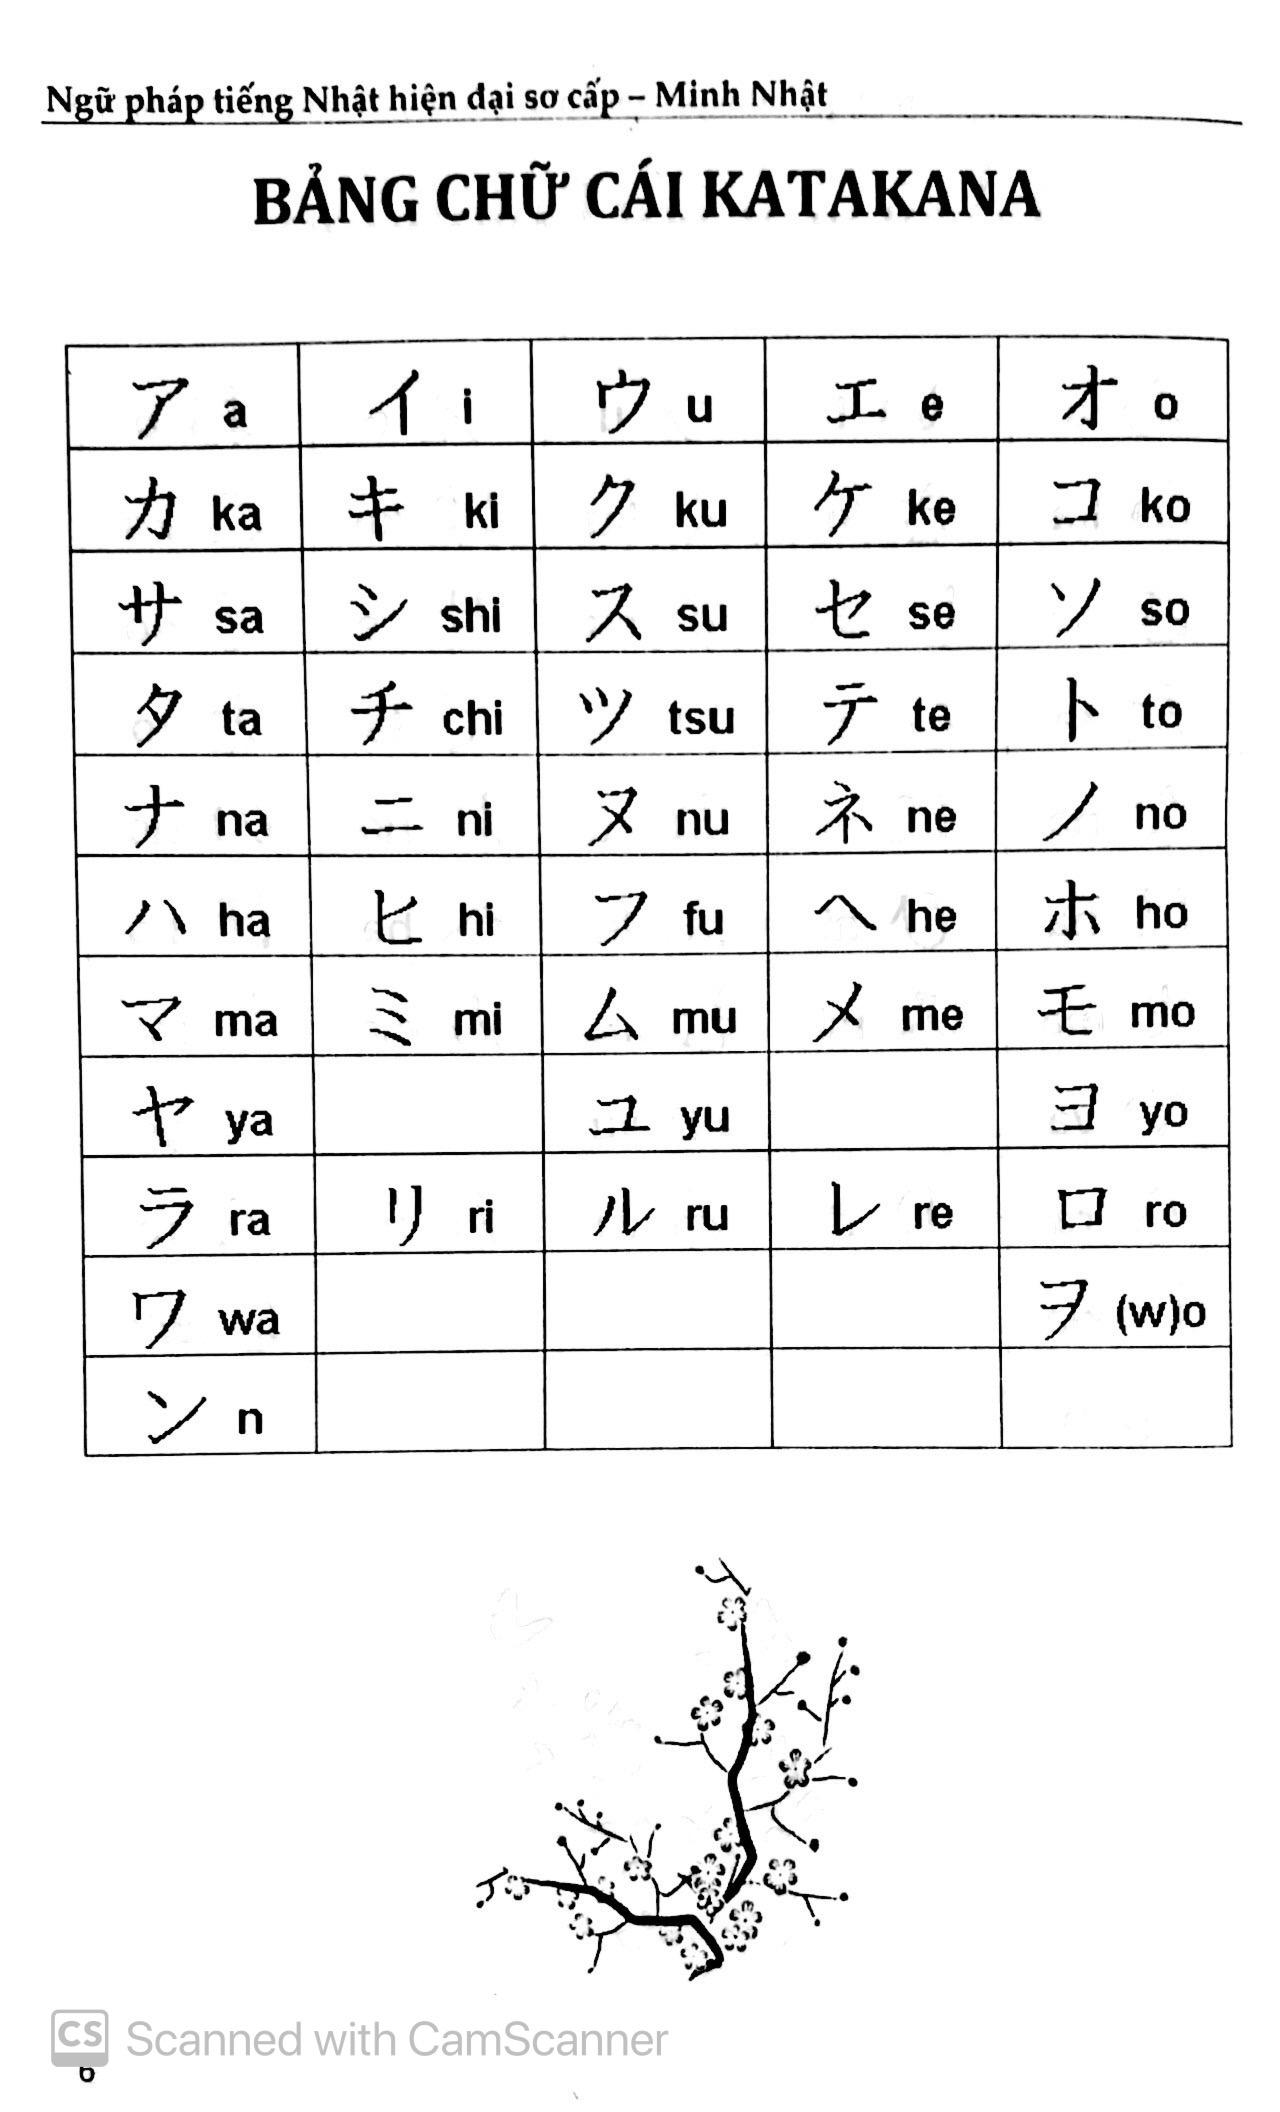 Ngữ pháp tiếng Nhật hiện đại sơ cấp – Minh Nhật
BẢNG CHỮ CÁI KATAKANA
ア a イ i ウ u エ e オ o
カ ka キ ki ク ku ケ ke コ ko
サ sa シ shi ス su セ se ソ so
タ ta チ chi ツ tsu テ te ト to
ナ na ニ ni ヌ nu ネ ne ノ no
ハ ha ヒ hi フ fu ヘ he ホ ho
マ ma ミ mi ム mu メ me モ mo
ヤ ya ユ yu ヨ yo
ラ ra リ ri ル ru レ re ロ ro
ワ wa ヲ (w)o
ン n
CS Scanned with CamScanner
6